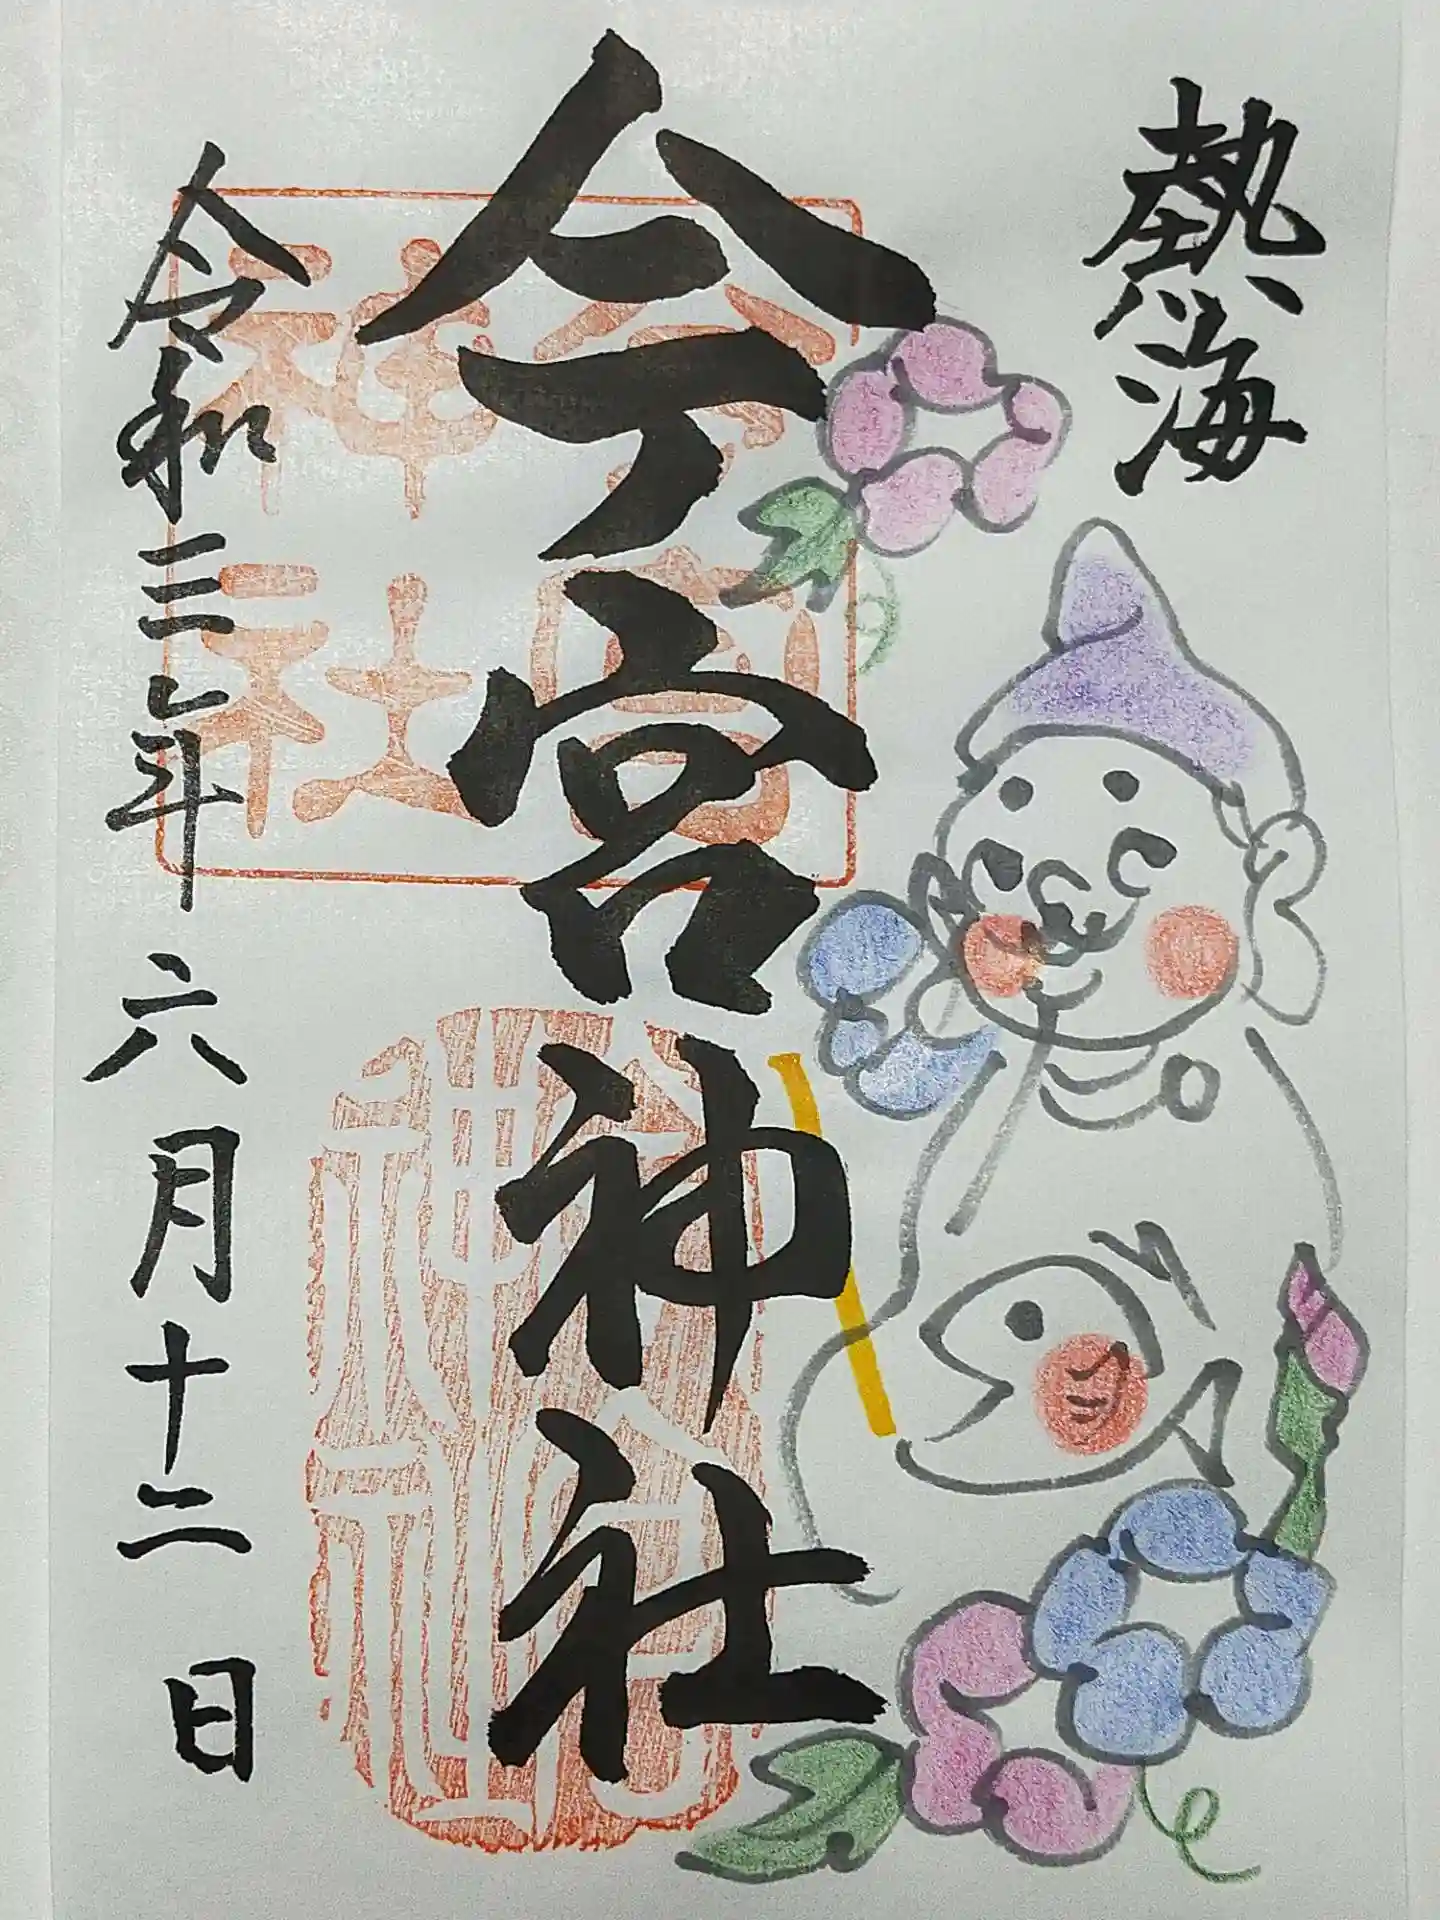 熱海
今宮神社
令和三年六月十二日
今宮神社
今宮神社